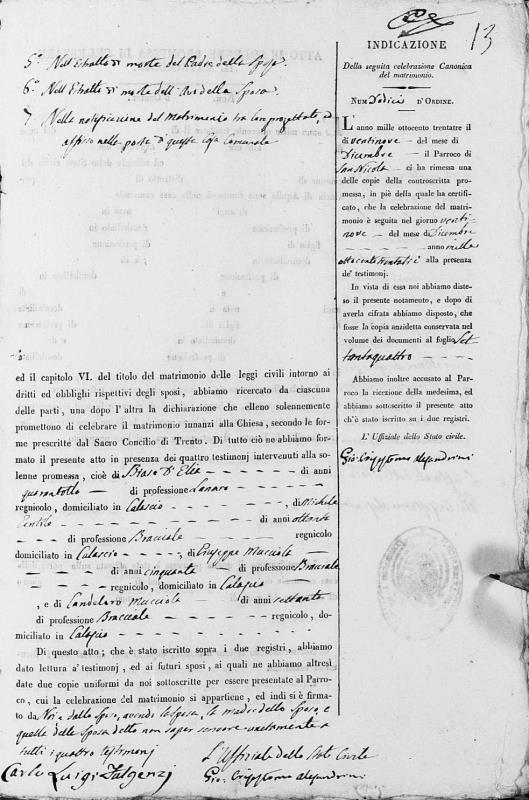 13
5.º Nell'Estratto di morte del Padre dello Sposo.
6.º Nell'Estratto di morte dell'Avo della Sposa
7. Nella notificazione del Matrimonio tra lor progettato, ed
affisso nella porta di questa Casa Comunale
ed il capitolo VI. del titolo del matrimonio delle leggi civili intorno ai
dritti ed obblighi rispettivi degli sposi, abbiamo ricercato da ciascuna
delle parti, una dopo l'altra la dichiarazione che elleno solennemente
promettono di celebrare il matrimonio innanzi alla Chiesa, secondo le for-
me prescritte dal Sacro Concilio di Trento. Di tutto ciò ne abbiamo for-
mato il presente atto in presenza dei quattro testimonj intervenuti alla so-
lenne promessa, cioè di Biase D'Elia di anni
quarantotto di professione Lanaro
regnicolo, domiciliato in Calascio, di Michele
Gentile di anni ottanta
di professione Bracciale regnicolo
domiciliato in Calascio, di Giuseppe Mucciola
di anni cinquanta di professione Bracciale
regnicolo, domiciliato in Calascio
, e di Candeloro Mucciola di anni settanta
di professione Bracciale regnicolo, do-
miciliato in Calascio
Di questo atto; che è stato iscritto sopra i due registri, abbiamo
dato lettura a' testimonj, ed ai futuri sposi, ai quali ne abbiamo altresì
date due copie uniformi da noi sottoscritte per essere presentate al Parro-
co, cui la celebrazione del matrimonio si appartiene, ed indi si è firma-
to da Noi e dallo Sposo, avendo la sposa, la madre dello Sposo, e
quella della Sposa detto non saper scrivere unitamente a
tutti i quattro testimonj
Carlo Luigi Fulgenzj
L'Uffiziale dello Stato Civile
Gio: Crisostomo Alesandrini
INDICAZIONE
Della seguita celebrazione Canonica
del matrimonio.
Num Dodici d'Ordine.
L'anno mille ottocento trentatre il
dì ventinove del mese di
Dicembre il Parroco di
San Nicola ci ha rimessa una
delle copie della controscritta pro-
messa, in piè della quale ha certifi-
cato, che la celebrazione del matri-
monio è seguita nel giorno venti-
nove del mese di Dicembre
anno mille
ottocento trentatre alla presenza
de' testimonj.
In vista di essa noi abbiamo diste-
so il presente notamento, e dopo di
averla cifrata abbiamo disposto, che
fosse la copia anzidetta conservata nel
volume dei documenti al foglio Set
tantaquattro
Abbiamo inoltre accusato al Par-
roco la ricezione della medesima, ed
abbiamo sottoscritto il presente atto
ch'è stato iscritto su i due registri.
L' Uffiziale dello Stato civile.
Gio: Crisostomo Alesandrini